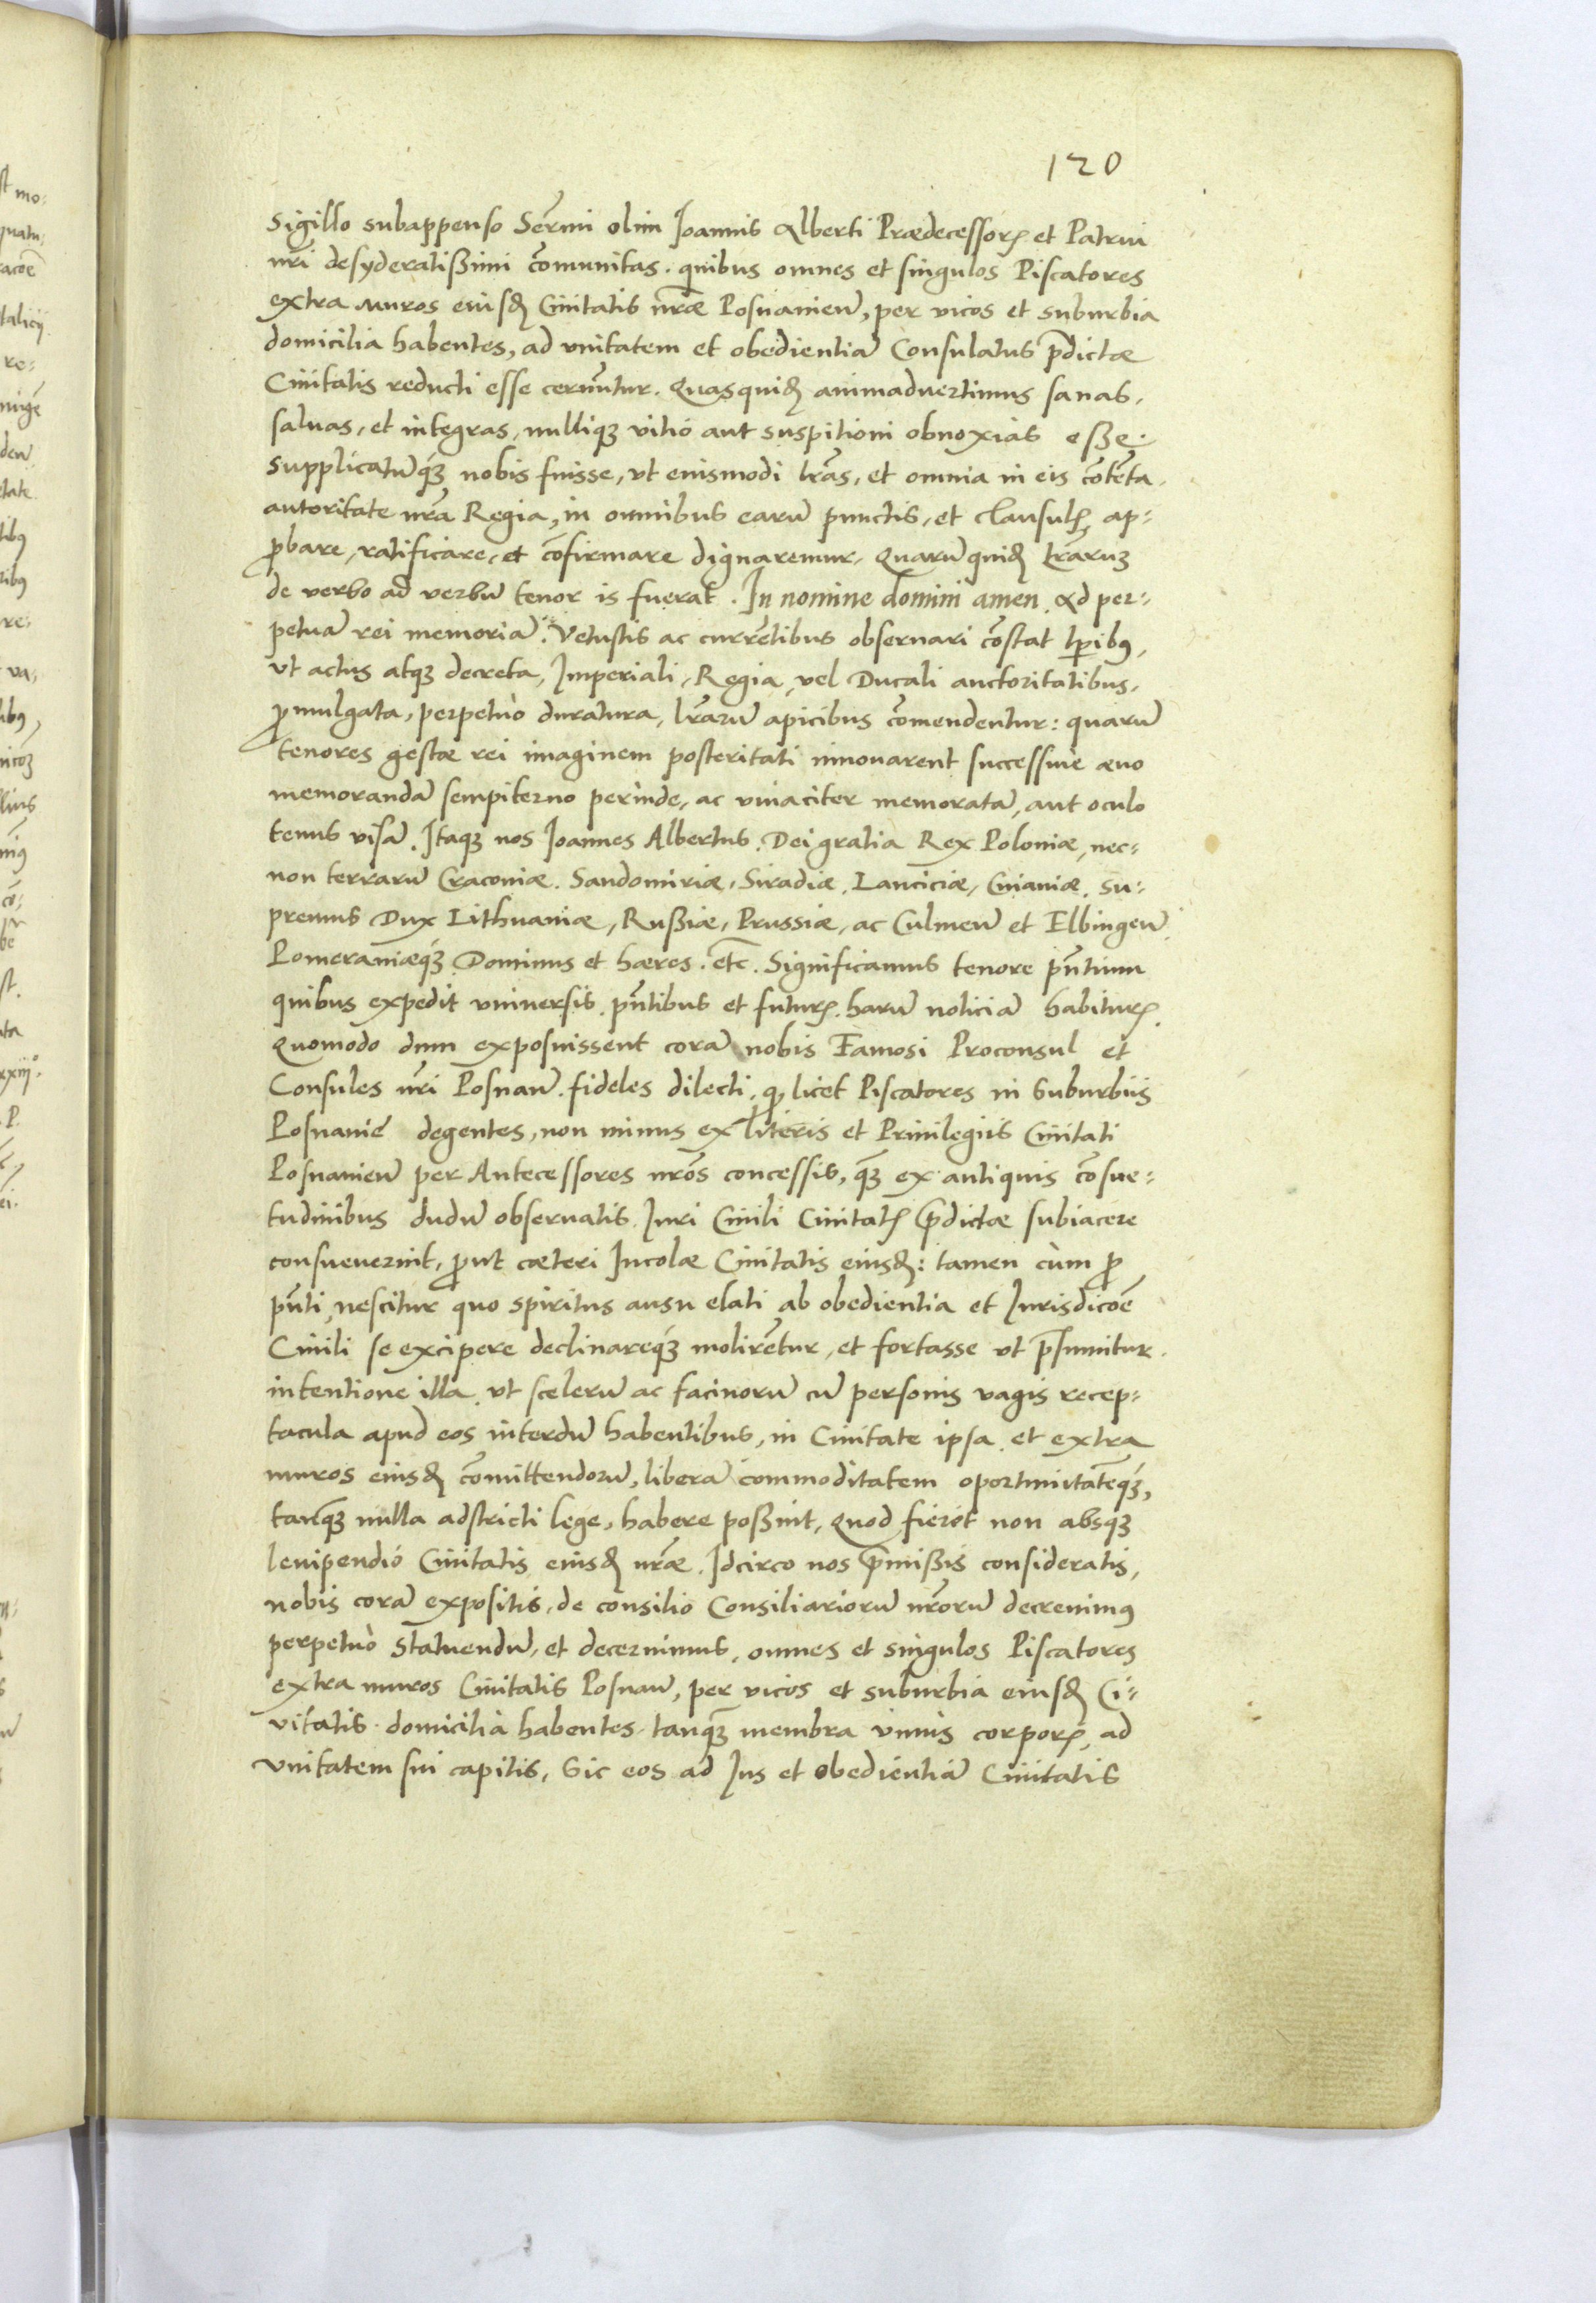 120
Sigillo subappenso Serᷓmi olim Joannis Alberti Prædecessorꝭ et Patrui
nrĩ desyderatißimi cõmunitas. quibus omnes et singulos Piscatores
extra muros eiusdꝫ Ciuitatis nrãe Posnanieñ, per vicos et suburbia
domicilia habentes, ad vnitatem et obedientiã Consulatus p̃dictæ
Ciuitatis reducti esse cernũtur. Quasquidꝫ animaduertimus sanas,
saluas, et integras, nulliqꝫ vitio aut suspitioni obnoxias eße.
Supplicatũqꝫ nobis fuisse, vt eiusmodi lrãs, et omnia in eis cõtẽta,
autoritate nrã Regia, in omnibus earũ punctis, et clausulꝭ, ap-
ꝓbare, ratificare, et cõfirmare dignaremur. Quarũ quidꝫ lrãruꝫ
de verbo ad verbũ tenor is fuerat. In nomine domini amen. Ad per-
petuã rei memoriã. Vetustis ac currẽtibus obseruari cõstat tp̃ibꝰ,
vt actus atqꝫ decreta, Imperiali, Regia, vel Ducali auctoritatibus,
ꝓmulgata, perpetuò duratura, lrãrũ apicibus cõmendentur: quarũ
tenores gestæ rei imaginem posteritati innouarent successiuè æuo
memorandã sempiterno perinde, ac viuaciter memoratã, aut oculo
tenus visã. Itaqꝫ nos Joannes Albertus. Dei gratia Rex Poloniæ, nec-
non terrarũ Cracouiæ. Sandomiriæ, Siradiæ, Lanciciæ, Cuiauiæ, su-
premus Dux Lithuaniæ, Rußiæ, Prussiæ, ac Culmeñ et Elbingeñ
Pomeraniæqꝫ Dominus et hæres. etc̃. Significamus tenore pñtium
quibus expedit vniuersis. pñtibus et futurꝭ. harũ noticiã habiturꝭ.
Quomodo dum exposuissent corã nobis Famosi Proconsul et
Consules nrĩ Posnañ. fideles dilecti, ꝙ licet Piscatores in Suburbiis
Posnanie degentes, non minus ex literis et Priuilegiis Ciuitati
Posnanieñ per Antecessores nrõs concessis, qꝫ̃ ex antiquis cõsue-
tudinibus dudũ obseruatis Juri Ciuili Ciuitatꝭ p̃dictæ subiacere
consueuerint, ꝓut cæteri Incolæ Ciuitatis eiusdꝫ: tamen cùm ꝓ
pñti, nescitur quo spiritus ausu elati ab obedientia et Jurisdicoẽ
Ciuili se excipere declinareqꝫ molirẽtur, et fortasse vt p̃sumitur.
intentione illa, vt scelerũ ac facinorũ cũ personis vagis recep-
tacula apud eos interdũ habentibus, in Ciuitate ipsa et extra
muros eiusdꝫ cõmittendorũ, liberã commoditatem oportunitatẽqꝫ,
tanqꝫ̃ nulla adstricti lege, habere poßint, Quod fieret non absqꝫ
leuipendio Ciuitatis eiusdꝫ nrãe. Idcirco nos p̃mißis consideratis,
nobis corã expositis, de consilio Consiliariorũ nrõrũ decreuimꝰ
perpetuò statuendũ, et decernimus, omnes et singulos Piscatores
extra muros Ciuitatis Posnañ, per vicos et suburbia eiusdꝫ Ci-
vitatis domicilia habentes, tanqꝫ̃ membra vnius corporꝭ, ad
vnitatem sui capitis, Sic eos ad Jus et obedientiã Ciuitatis